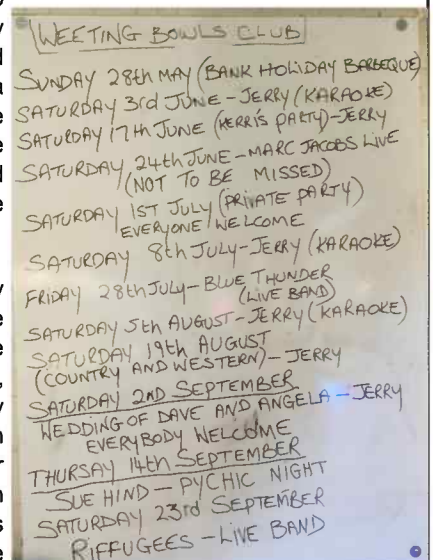 WEETING BOWLS CLUB
SUNDAY 28th MAY (BANK HOLIDAY BARBEQUE)
SATURDAY 3rd JUNE - JERRY (KARAOKE)
SATURDAY 17th JUNE (KERRIS PARTY) - JERRY
SATURDAY 24th JUNE - MARC JACOBS LIVE
(NOT TO BE MISSED)
SATURDAY 1ST JULY (PRIVATE PARTY)
EVERYONE WELCOME
SATURDAY 8th JULY - JERRY (KARAOKE)
FRIDAY 28th JULY - BLUE THUNDER
(LIVE BAND)
SATURDAY 5th AUGUST - JERRY (KARAOKE)
SATURDAY 19th AUGUST
(COUNTRY AND WESTERN) - JERRY
SATURDAY 2ND SEPTEMBER
WEDDING OF DAVE AND ANGELA - JERRY
EVERYBODY WELCOME
THURSAY 14th SEPTEMBER
SUE HIND - PYCHIC NIGHT
SATURDAY 23rd SEPTEMBER
RIFFUGEES - LIVE BAND